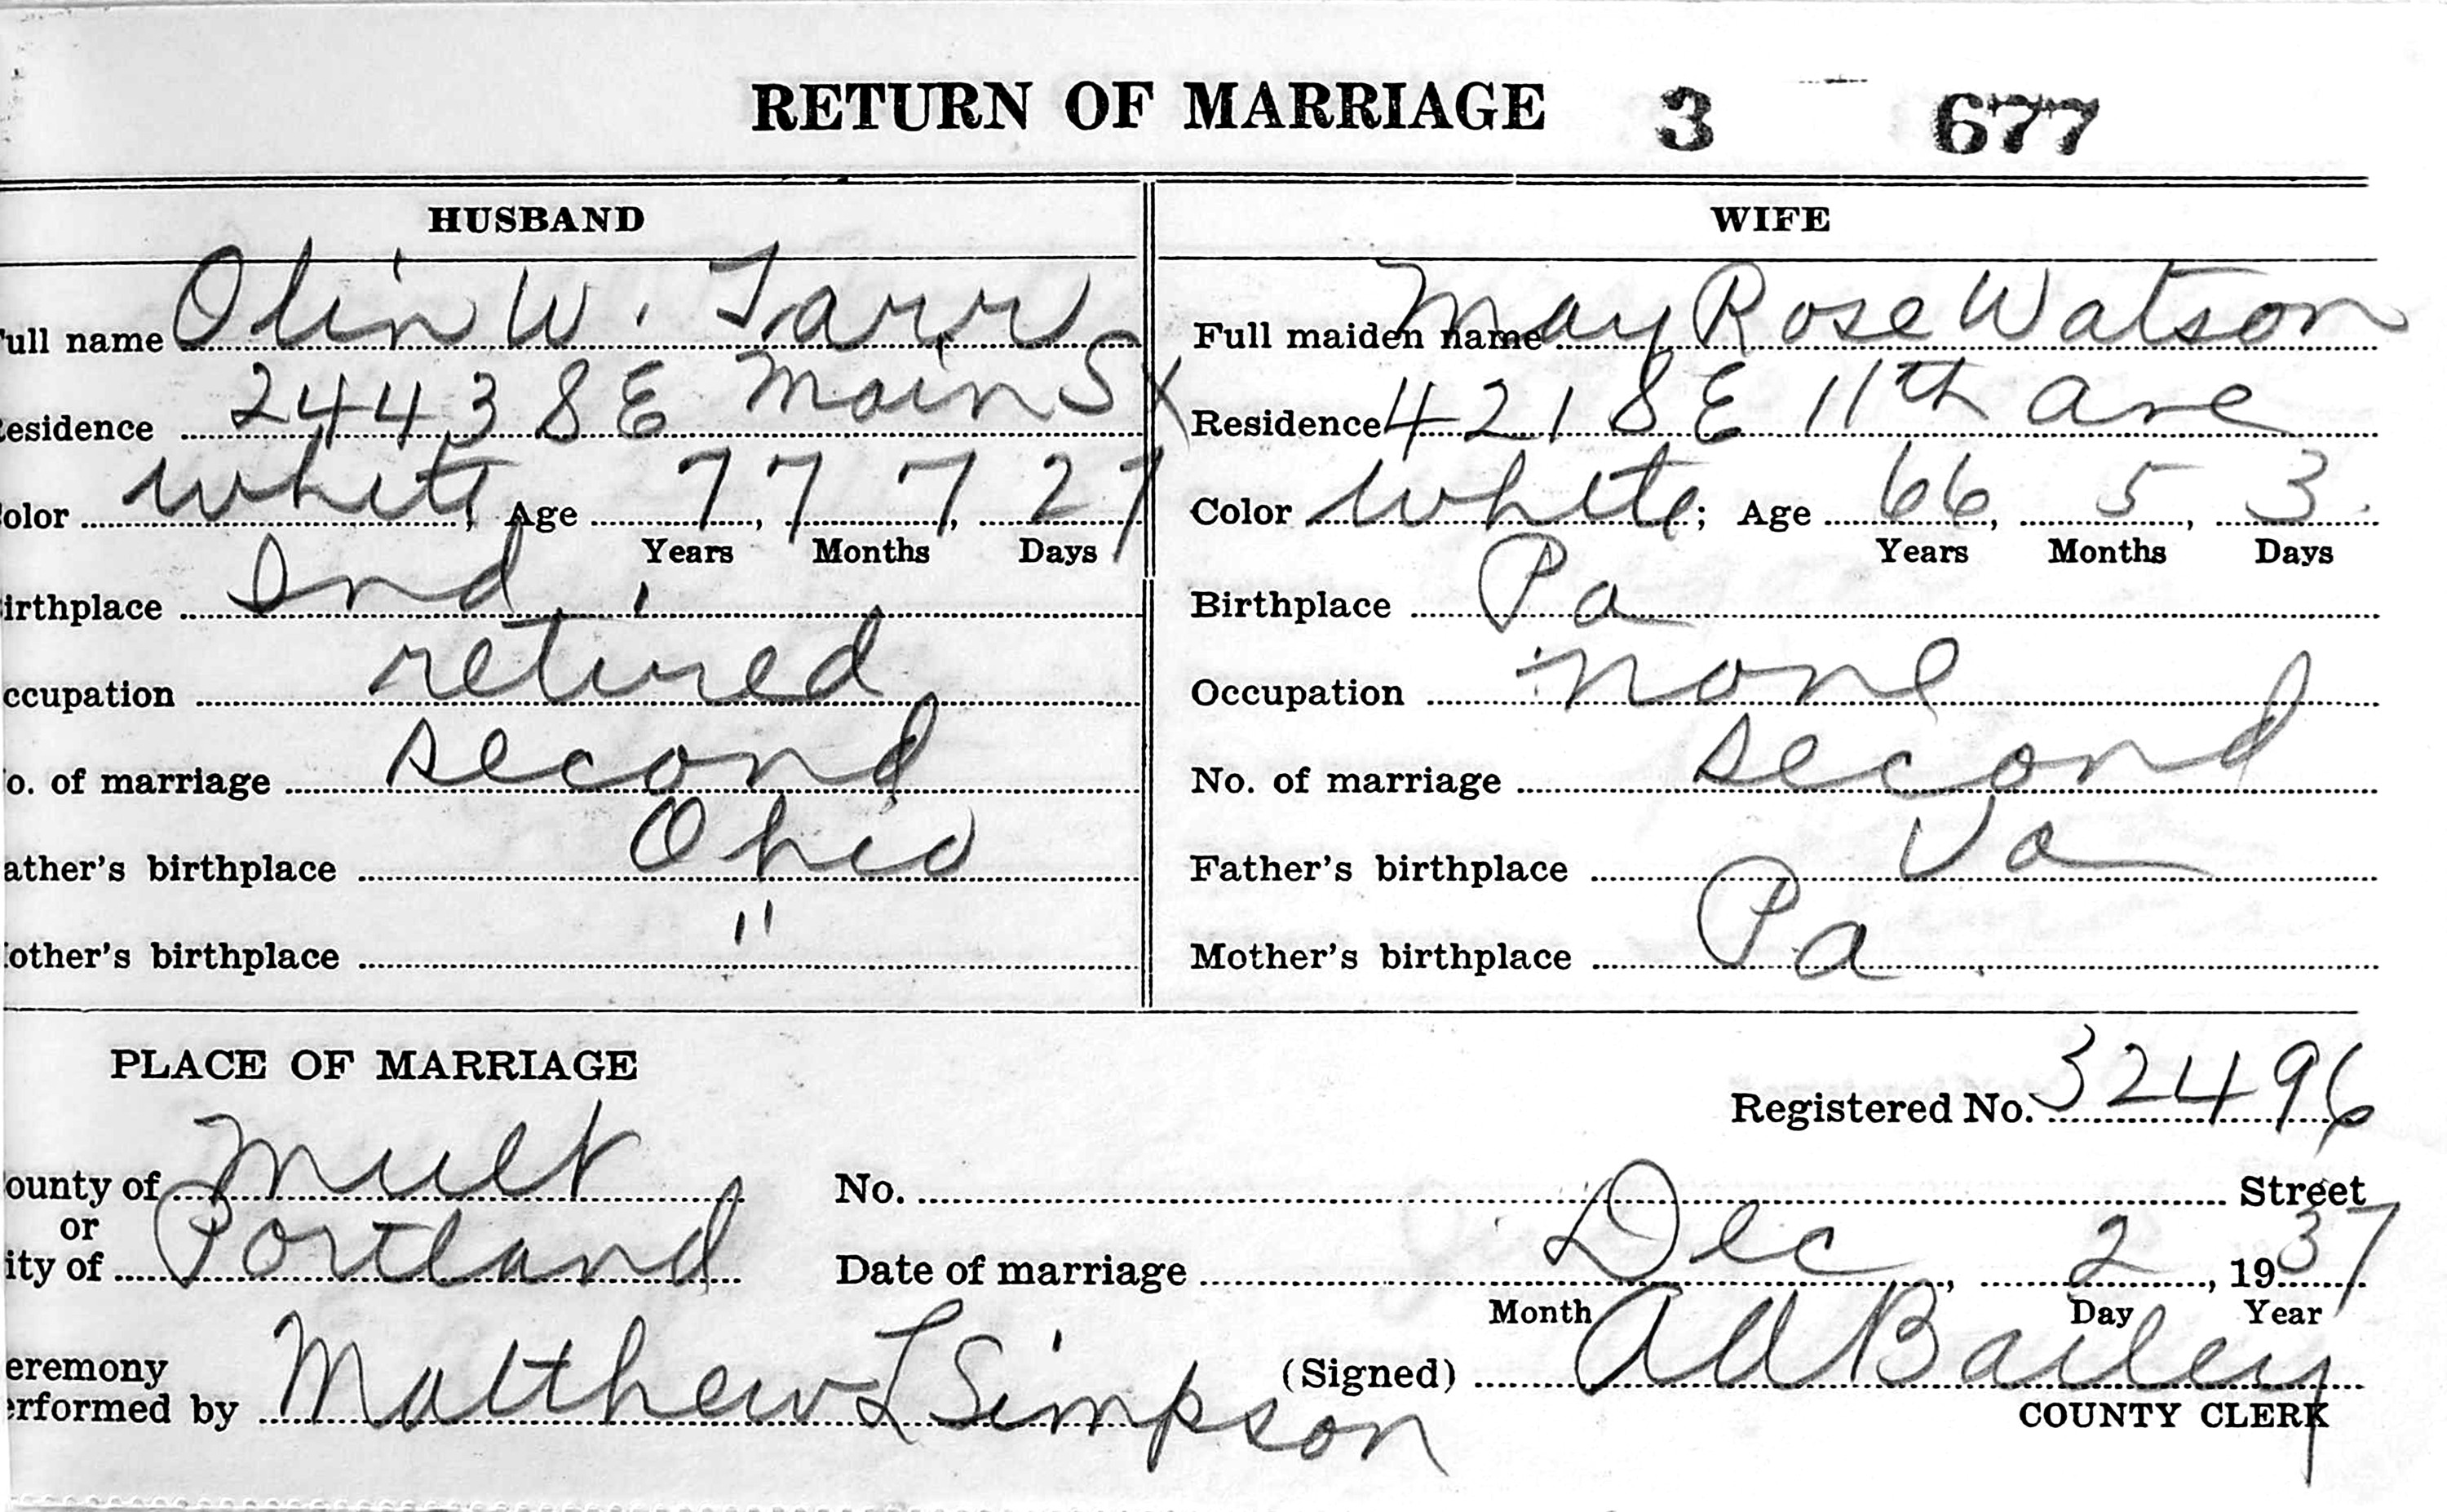 RETURN OF MARRIAGE 3 677
HUSBAND WIFE
ull name Olin W. Tarr Full maiden name May Rose Watson
esidence 2443 SE Main St Residence 421 SE 11th Ave
olor White, Age 77, 7, 27 Color White; Age 66, 5, 3
Years Months Days Years Months Days
irthplace Ind. Birthplace Pa
ccupation retired Occupation none
o. of marriage second No. of marriage second
ather's birthplace Ohio Father's birthplace Va
other's birthplace " Mother's birthplace Pa
PLACE OF MARRIAGE
Registered No. 32496
ounty of Mult No. Street
or
ity of Portland Date of marriage Dec, 2, 1937
Month Day Year
eremony
erformed by Matthew L Simpson (Signed) A A Bailey
COUNTY CLERK